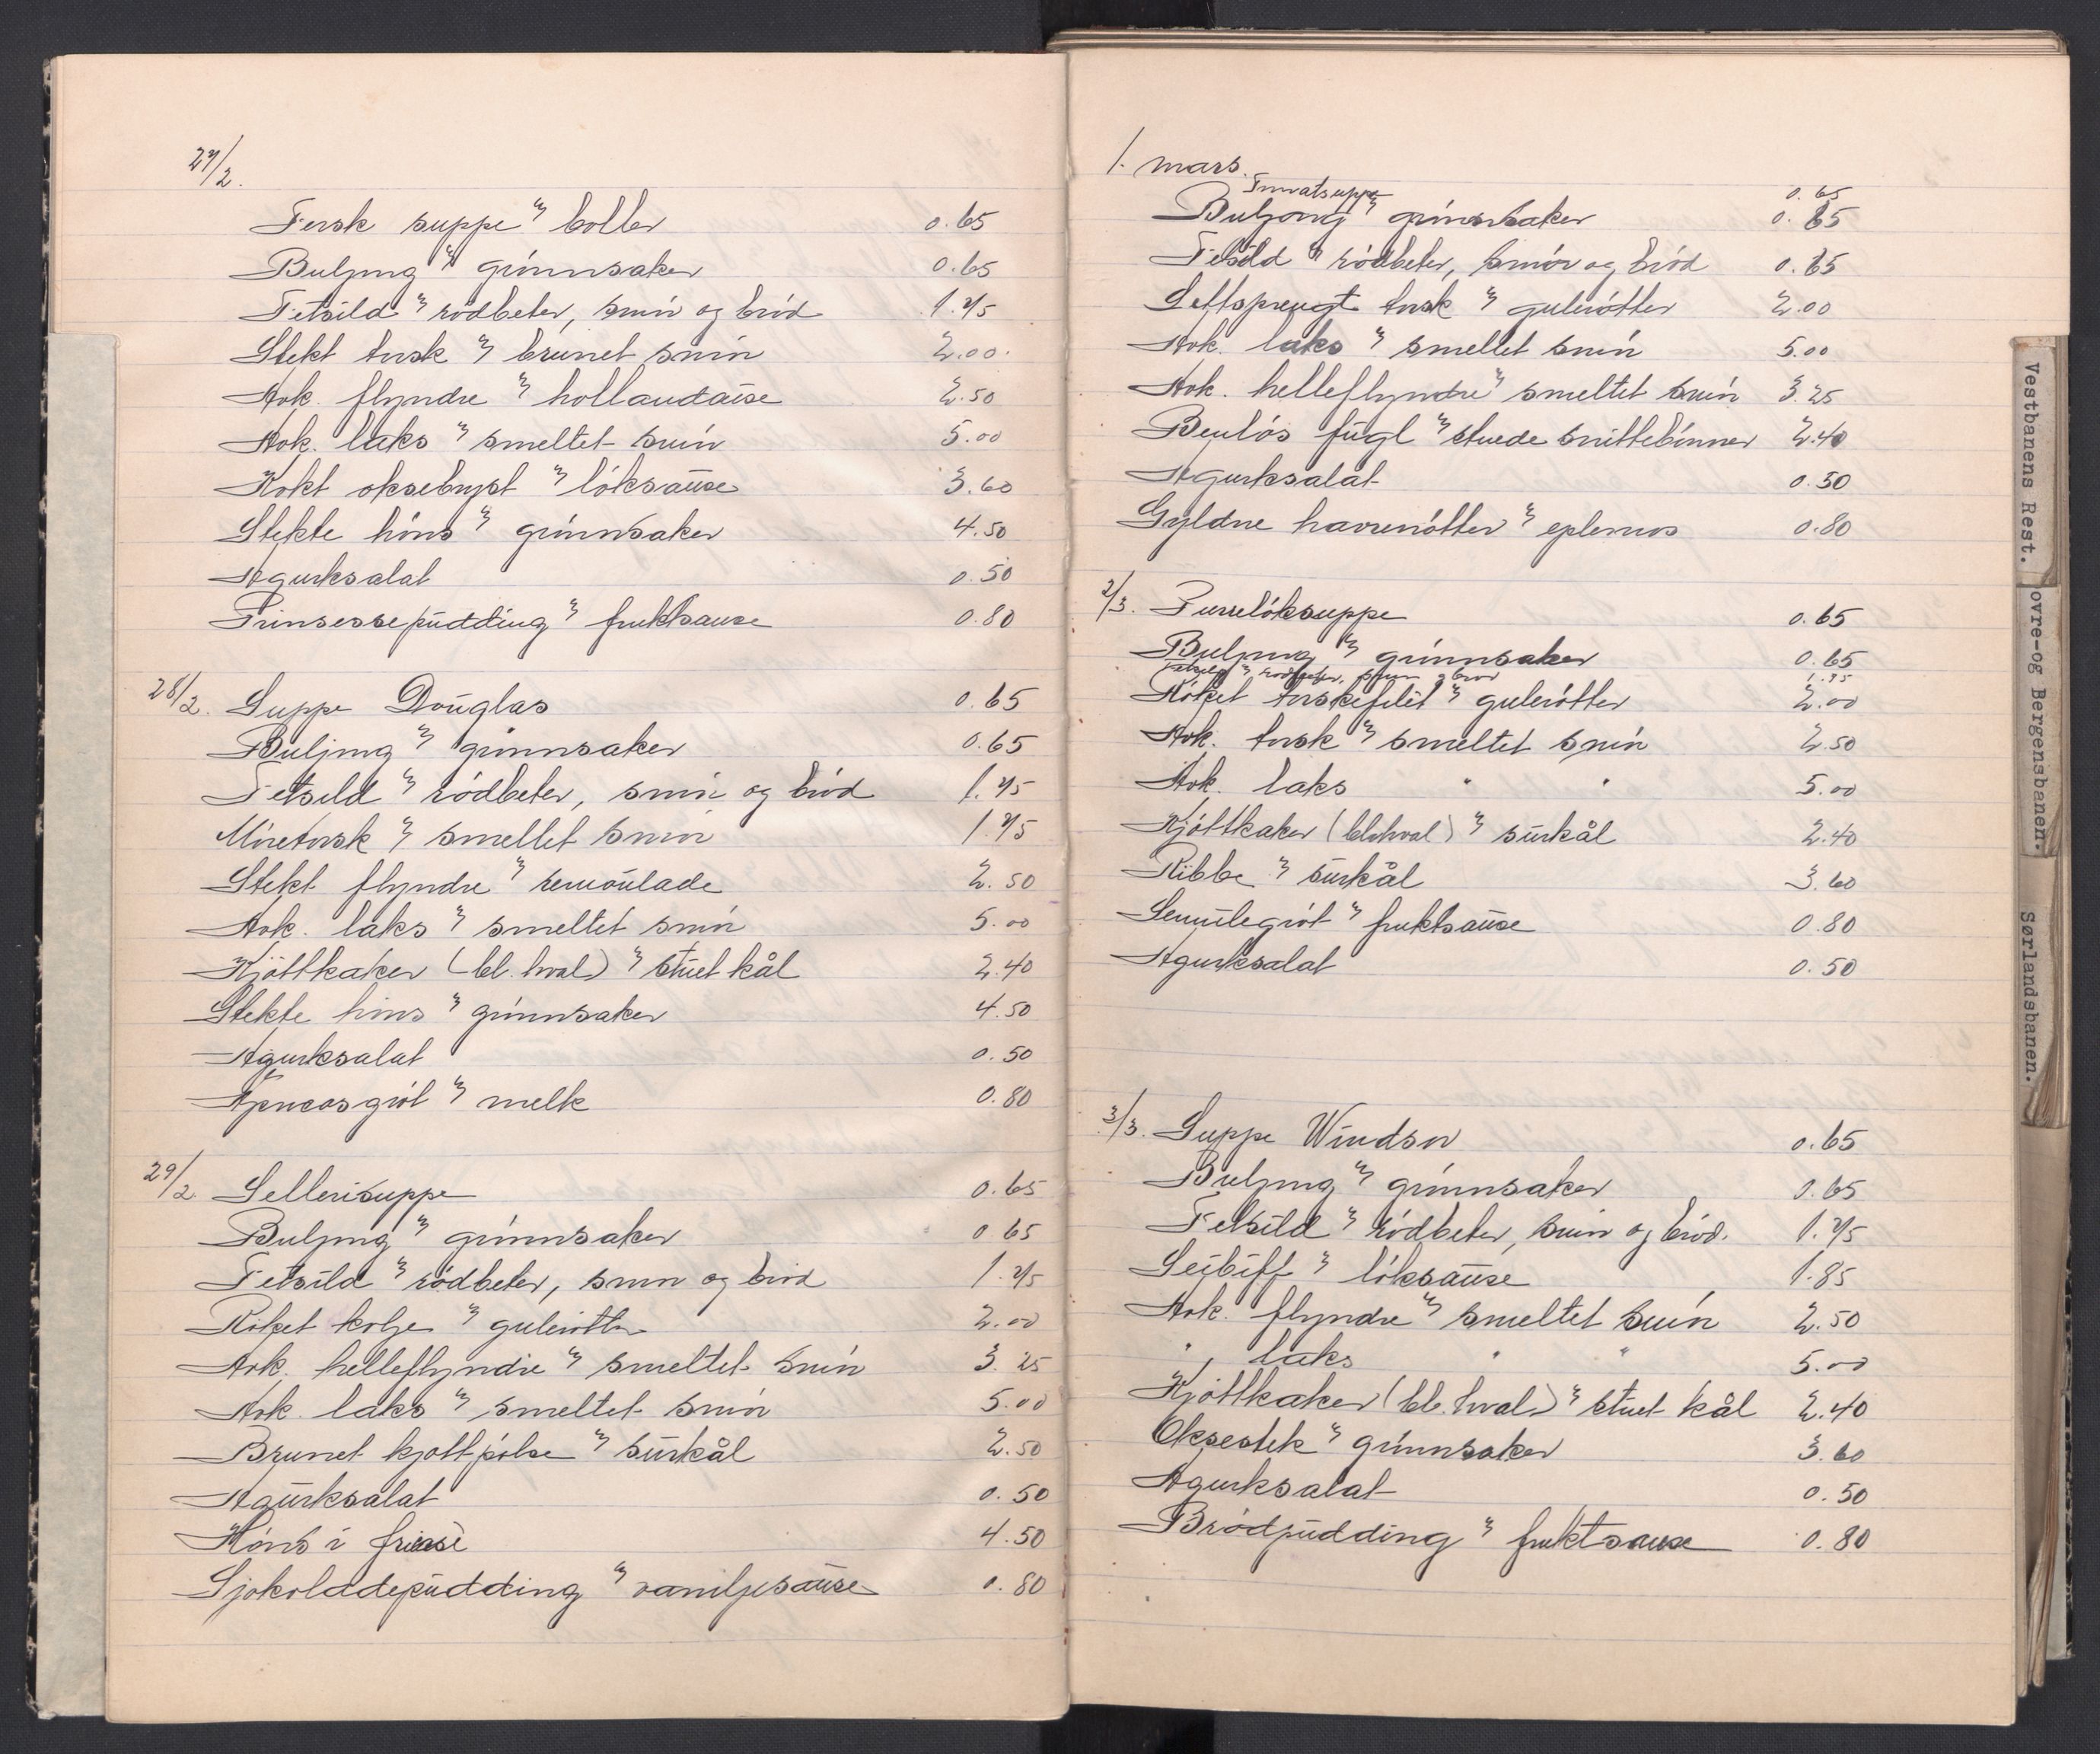 27/2.
Fersk suppe m/ boller 0.65
Buljong m/ grönnsaker 0.65
Fetsild m/ rödbeter, smör og bröd 1.75
Stekt torsk m/ brunet smör 2.00
Avk. flyndre m/ hollandaise 2.50
Avk. laks m/ smeltet smör 5.00
Kokt oksebryst m/ löksause 3.60
Stekte höns m/ grönnsaker 4.50
Agurksalat 0.50
Prinsessepudding m/ fruktsause 0.80
28/2. Suppe Douglas 0.65
Buljong m/ grönnsaker 0.65
Fetsild m/ rödbeter, smör og bröd 1.75
Möretorsk m/ smeltet smör 1.75
Stekt flyndre m/ remoulade 2.50
Avk. laks m/ smeltet smör 5.00
Kjöttkaker (bl. hval) m/ stuet kål 2.40
Stekte höns m/ grönnsaker 4.50
Agurksalat 0.50
Apricosgröt m/ melk 0.80
29/2. Sellerisuppe 0.65
Buljong m/ grönnsaker 0.65
Fetsild m/ rödbeter, smör og bröd 1.75
Röket kolje m/ gulerötter 2.00
Avk. helleflyndre m/ smeltet smör 3.25
Avk. laks m/ smeltet smör 5.00
Brunet kjöttpölse m/ surkål 2.50
Agurksalat 0.50
Höns i fricasé 4.50
Sjokoladepudding m/ vaniljesause 0.80
1. mars.
Tomatsuppe 0.65
Buljong m/ grönnsaker 0.65
Fetsild m/ rödbeter, smör og bröd
Lettsprengt torsk m/ gulerötter 2.00
Avk. laks m/ smeltet smör 5.00
Avk. helleflyndre m/ smeltet smör 3.25
Benlös fugl m/ stuede snittebönner 2.40
Agurksalat 0.50
Gyldne havrenötter m/ eplemos 0.80
2/3. Purreløksuppe 0.65
Buljong m/ grönnsaker 0.65
Fetsild m/ rödbeter, smör og bröd 1.75
Röket torskefilét m/ gulerötter 2.00
Avk. torsk m/ smeltet smör 2.50
Avk. laks " " 5.00
Kjöttkaker (bl. hval) m/ surkål 2.40
Ribbe m/ surkål 3.60
Semulegröt m/ fruktsause 0.80
Agurksalat 0.50
3/3. Suppe Windsor 0.65
Buljong m/ grönnsaker 0.65
Fetsild m/ rödbeter, smör og bröd. 1.75
Seibiff m/ löksause 1.85
Avk. flyndre m/ smeltet smör 2.50
" laks " " 5.00
Kjöttkaker (bl. hval) m/ stuet kål 2.40
Oksestek m/ grönnsaker 3.60
Agurksalat 0.50
Brödpudding m/ fruktsause 0.80
Vestbanens Rest.
ovre-og Bergensbanen.
Sørlandsbanen.